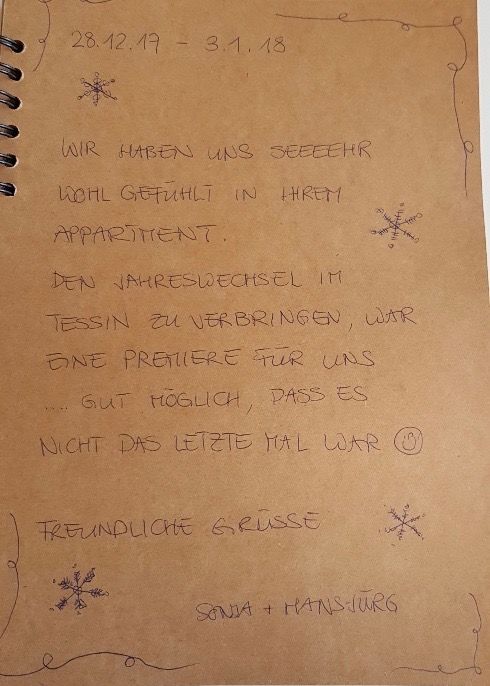 28.12.17 - 3.1.18
WIR HABEN UNS SEEEEHR
WOHL GEFÜHLT IN IHREM
APPARTMENT.
DEN JAHRESWECHSEL IM
TESSIN ZU VERBRINGEN, WAR
EINE PREMIERE FÜR UNS
.... GUT MÖGLICH, DASS ES
NICHT DAS LETZTE MAL WAR ☺
FREUNDLICHE GRÜSSE
SONJA + HANS-JÜRG